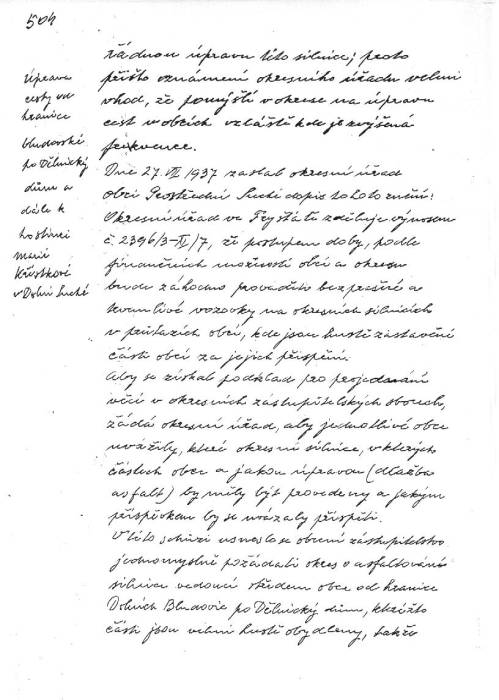 504
úprava
cesty od
hranice
bludovské
po Dělnický
dům a
dále k
hostinci
Marie
Křístkové
v Dolní Suché
žádnou úpravu této silnice; proto
přišlo oznámení okresního úřadu velmi
vhod, že pomýšlí v okrese na úpravu
cest v obcích vzláště kde je zvýšená
frekvence.
Dne 27. VII 1937 zaslal okresní úřad
obci Prostřední Suché dopis tohoto znění:
Okresní úřad ve Fryštátě sděluje výnosem
č. 2396/3-II/7, že postupem doby, podle
finančních možností obcí a okresu
bude záhodno prováděti bezprašné a
trvanlivé vozovky na okresních silnicích
v průtazích obcí, kde jsou hustě zastavěné
části obcí za jejich přispění.
Aby se získal podklad pro projednání
věcí v okresních zastupitelských sborech,
žádá okresní úřad, aby jednotlivé obce
uvážily, které okresní silnice, v kterých
částech obce a jakou úpravou (dlažba
asfalt) by měly být provedeny a jakým
příspěvkem by se uvázaly přispěti.
V této schůzi usneslo se obecní zastupitelstvo
jednomyslně požádati okres o asfaltování
silnice vedoucí středem obce od hranice
Dolních Bludovic po Dělnický dům, kterážto
část jsou velmi hustě obydleny, takže